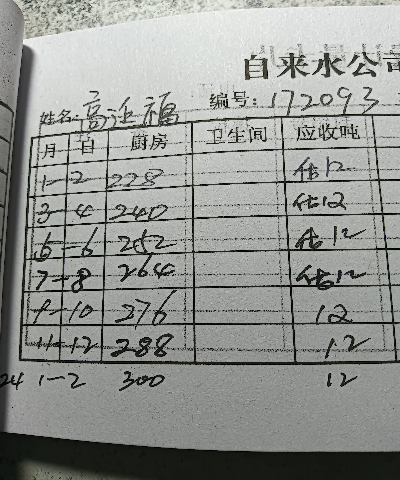 自来水公司
姓名:高延福 编号:172093
月 日 厨房 卫生间 应收吨
1-2 228 估12
3-4 240 估12
5-6 252 估12
7-8 264 估12
9-10 276 12
11-12 288 12
24 1-2 300 12